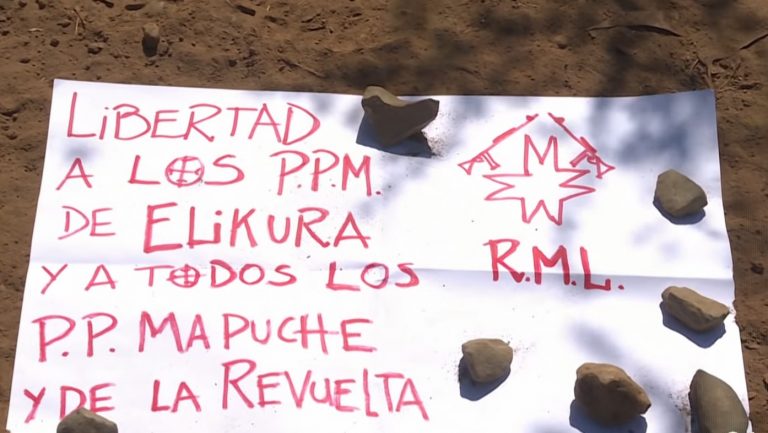 LiBERTAD
A LOS P.P.M.
DE ELiKURA
Y A TODOS LOS
P.P. MAPUCHE
Y DE LA REVUELTA
M
R.M.L.